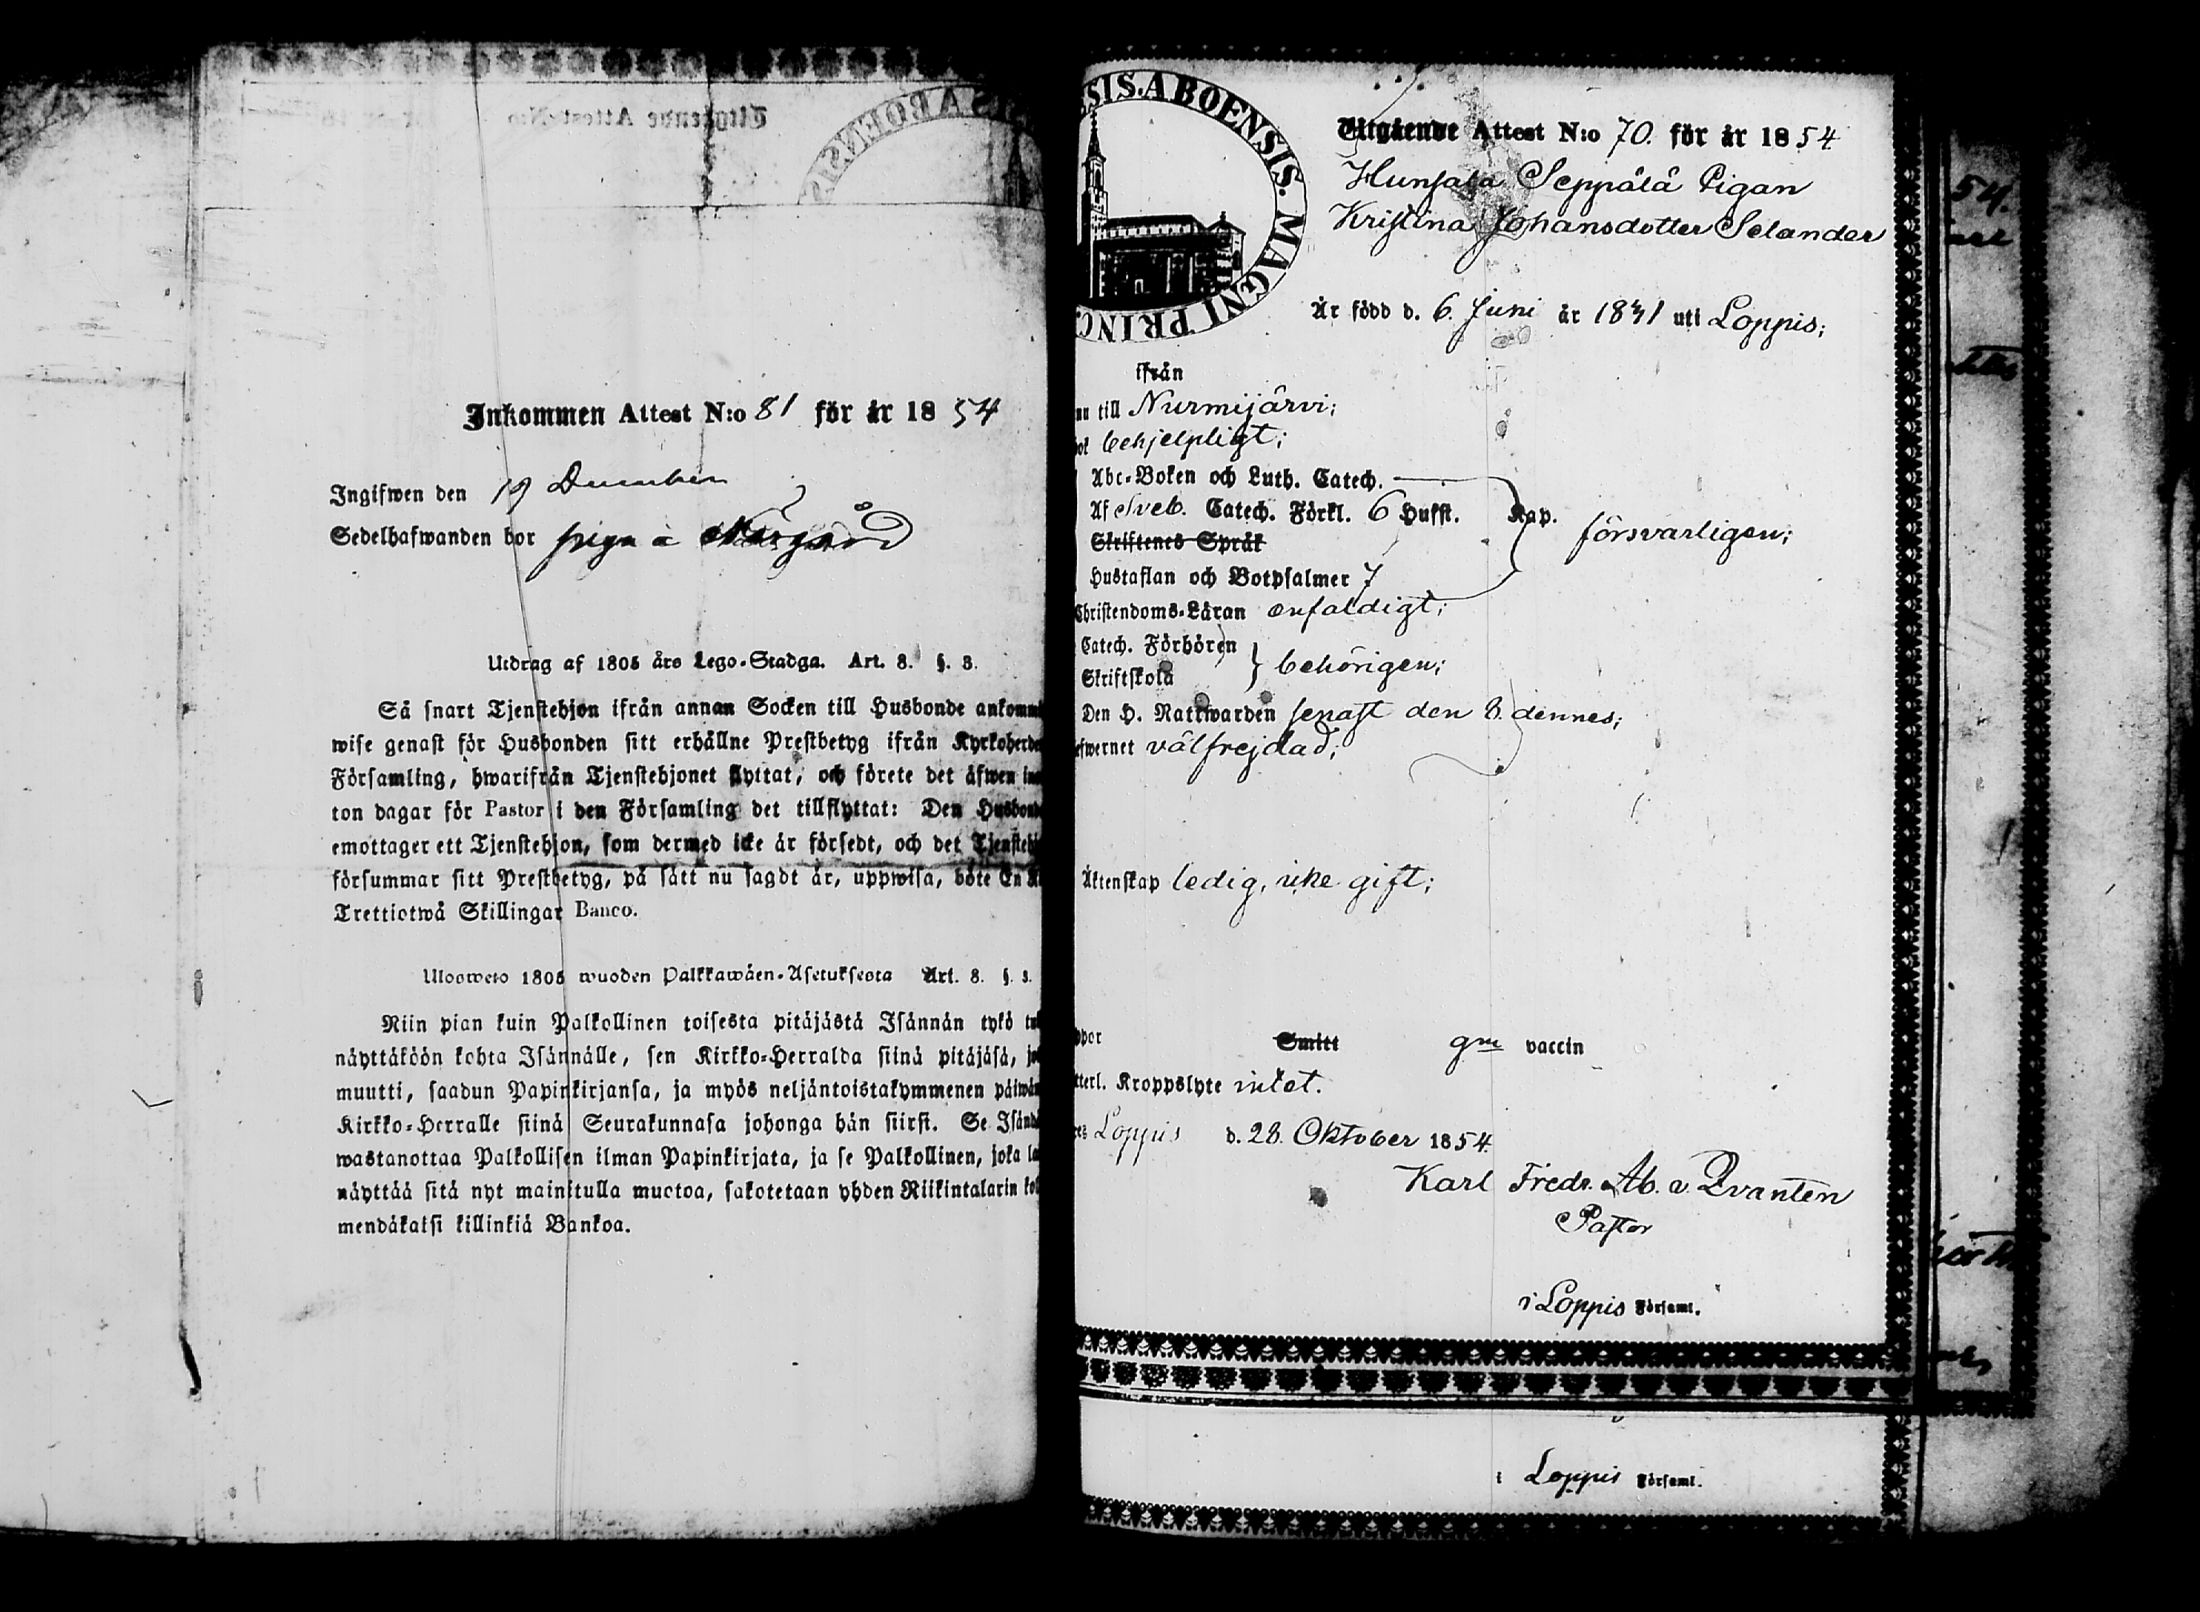 Utgående Attest N:o
ABOENSIS
Inkommen Attest N:o 81 för år 1854
Ingifwen den 19 December
Sedelhafwanden bor piga å Någård
Utdrag af 1805 års Lego-Stadga. Art. 8. §. 3.
Så snart Tjenstehjon ifrån annan Socken till Husbonde ankommi
wise genast för Husbonden sitt erhållne Prestbetyg ifrån Kyrkoherde
Församling, hwarifrån Tjenstehjonet flyttat, och förete det äfwen in
ton dagar för Pastor i den Församling det tillflyttat: Den Husbond
emottager ett Tjenstehjon, som dermed icke är försedt, och det Tjensteh
försummar sitt Prestbetyg, på sätt nu sagdt är, uppwisa, böte En R
Trettiotwå Skillingar Banco.
Ulosweto 1805 wuoden Palkkawäen-Asetuksesta Art. 8. §. 3.
Niin pian kuin Palkollinen toisesta pitäjästä Isännän tykö tu
näyttäköön kohta Isännälle, sen Kirkko-Herralda siinä pitäjäsä, jo
muutti, saadun Papinkirjansa, ja myös neljäntoistakymmenen päiwän
Kirkko-Herralle siinä Seurakunnasa johonga hän siirsi. Se Isändä
wastanottaa Palkollisen ilman Papinkirjata, ja se Palkollinen, joka la
näyttää sitä nyt mainitulla muotoa, sakotetaan yhden Riikintalarin kol
mendäkatsi killinkiä Bankoa.
SIS. ABOENSIS. MAGNI PRINC
Utgående Attest N:o 70. för år 1854
Hunsala Seppälä Pigan
Kristina Johansdotter Selander
Är född d. 6. Juni år 1831 uti Loppis;
ifrån
nu till Nurmijärvi;
bok behjelpligt;
Abc-Boken och Luth. Catech.
Af Sveb. Catech. Förkl. 6 Hufst. Kap. försvarligen;
Skriftenes Språk
Hustaflan och Botpsalmer 7
Christendoms-Läran enfaldigt;
Catech. Förhören
Skriftskola behörigen;
Den H. Nattwarden senast den 8. dennes;
efwernet välfrejdad;
Äktenskap ledig, icke gift;
ppor Smitt gm vaccin
tterl. Kroppslyte intet.
res Loppis d. 28. Oktober 1854.
Karl Fredr. Ab. a Qvanten
Pastor
i Loppis Församl.
i Loppis Församl.
54.